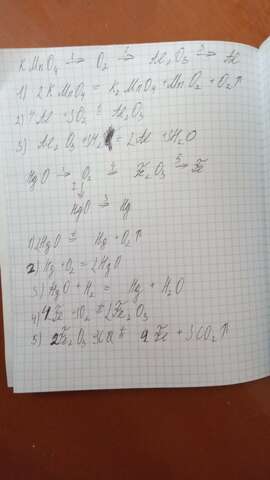 KMnO₄ →¹ O₂ →² Al₂O₃ →³ Al
1) 2KMnO₄ = K₂MnO₄ + MnO₂ + O₂↑
2) 4Al + 3O₂ = Al₂O₃
3) Al₂O₃ + 3H₂ = 2Al + 3H₂O
HgO → O₂ →⁴ Fe₂O₃ →⁵ Fe
2↓
HgO →³ Hg
1) 2HgO = Hg + O₂↑
2) Hg + O₂ = 2HgO
3) HgO + H₂ = Hg + H₂O
4) 4Fe + 3O₂ = 2Fe₂O₃
5) 2Fe₂O₃ + 3C = 4Fe + 3CO₂↑